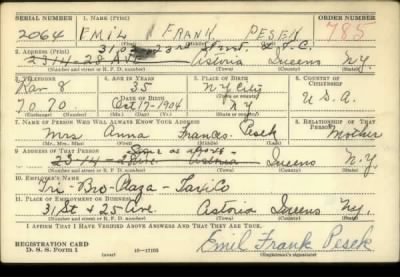 SERIAL NUMBER 1. NAME (Print) ORDER NUMBER
2064 EMIL FRANK PESEK 785
(First) (Middle) (Last)
2. ADDRESS (Print)
2314-28 AVE Astoria Queens N.Y.
(Number and street or R. F. D. number) (Town) (County) (State)
3. TELEPHONE 4. AGE IN YEARS 5. PLACE OF BIRTH 6. COUNTRY OF CITIZENSHIP
Rav 8 35 N Y City
DATE OF BIRTH
7070 Oct 17-1904 N Y U.S.A.
(Exchange) (Number) (Mo.) (Day) (Yr.) (State or country)
7. NAME OF PERSON WHO WILL ALWAYS KNOW YOUR ADDRESS 8. RELATIONSHIP OF THAT PERSON
Mrs Anna Frances Pesek Mother
(Mr., Mrs., Miss) (First) (Middle) (Last)
9. ADDRESS OF THAT PERSON Same as above
23-14-28 Ave. Astoria Queens N.Y.
(Number and street or R. F. D. number) (Town) (County) (State)
10. EMPLOYER'S NAME
Tri-Bro-Plaza-Taxi Co
11. PLACE OF EMPLOYMENT OR BUSINESS
31 St & 25 Ave. Astoria Queens N.Y.
(Number and street or R. F. D. number) (Town) (County) (State)
I AFFIRM THAT I HAVE VERIFIED ABOVE ANSWERS AND THAT THEY ARE TRUE.
REGISTRATION CARD
D. S. S. Form 1 (over) 16-17105 Emil Frank Pesek
(Registrant's signature)